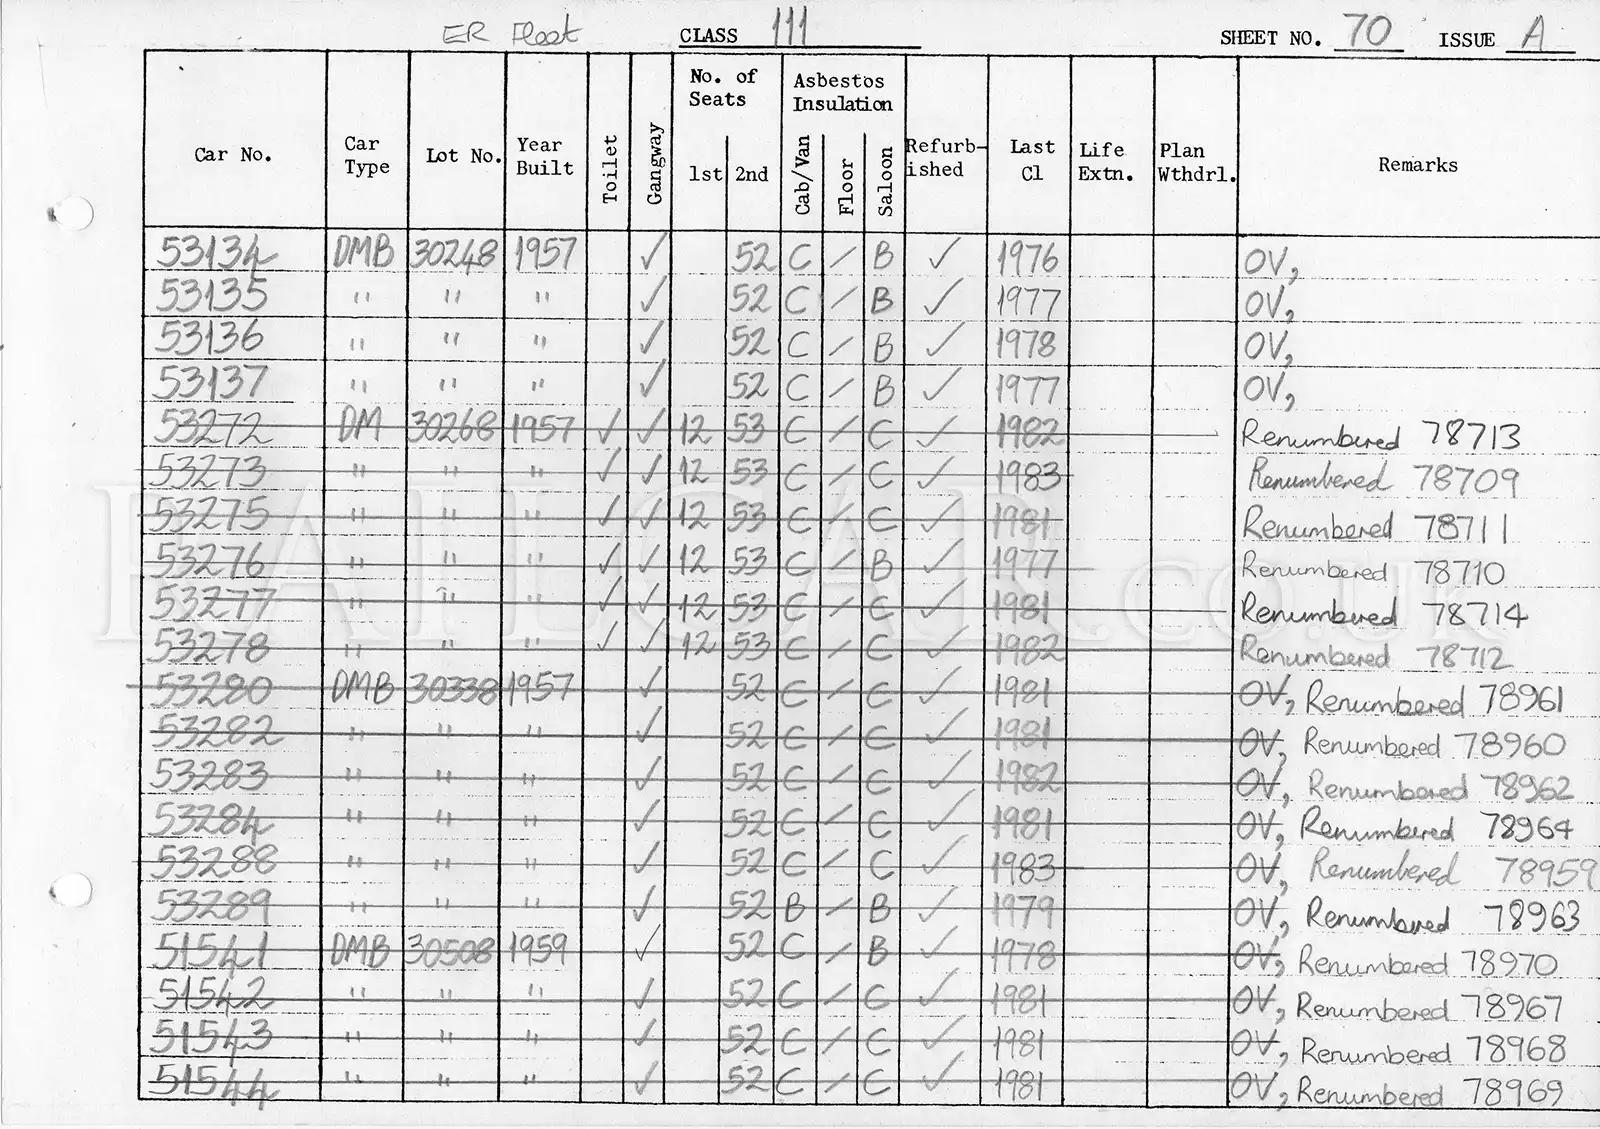 ER Fleet CLASS 111 SHEET NO. 70 ISSUE A
Car No. Car Type Lot No. Year Built Toilet Gangway No. of Seats 1st 2nd Asbestos Insulation Cab/Van Floor Saloon Refurb-ished Last Cl Life Extn. Plan Wthdrl. Remarks
53134 DMB 30248 1957 ✓ 52 C / B ✓ 1976 OV,
53135 " " " ✓ 52 C / B ✓ 1977 OV,
53136 " " " ✓ 52 C / B ✓ 1978 OV,
53137 " " " ✓ 52 C / B ✓ 1977 OV,
53272 DM 30268 1957 ✓ ✓ 12 53 C / C ✓ 1982 Renumbered 78713
53273 " " " ✓ ✓ 12 53 C / C ✓ 1983 Renumbered 78709
53275 " " " ✓ ✓ 12 53 C / C ✓ 1981 Renumbered 78711
53276 " " " ✓ ✓ 12 53 C / B ✓ 1977 Renumbered 78710
53277 " " " ✓ ✓ 12 53 C / C ✓ 1981 Renumbered 78714
53278 " " " ✓ ✓ 12 53 C / C ✓ 1982 Renumbered 78712
53280 DMB 30338 1957 ✓ 52 C / C ✓ 1981 OV, Renumbered 78961
53282 " " " ✓ 52 C / C ✓ 1981 OV, Renumbered 78960
53283 " " " ✓ 52 C / C ✓ 1982 OV, Renumbered 78962
53284 " " " ✓ 52 C / C ✓ 1981 OV, Renumbered 78964
53288 " " " ✓ 52 C / C ✓ 1983 OV, Renumbered 78959
53289 " " " ✓ 52 B / B ✓ 1979 OV, Renumbered 78963
51541 DMB 30508 1959 ✓ 52 C / B ✓ 1978 OV, Renumbered 78970
51542 " " " ✓ 52 C / C ✓ 1981 OV, Renumbered 78967
51543 " " " ✓ 52 C / C ✓ 1981 OV, Renumbered 78968
51544 " " " ✓ 52 C / C ✓ 1981 OV, Renumbered 78969
RAILCAR.co.uk